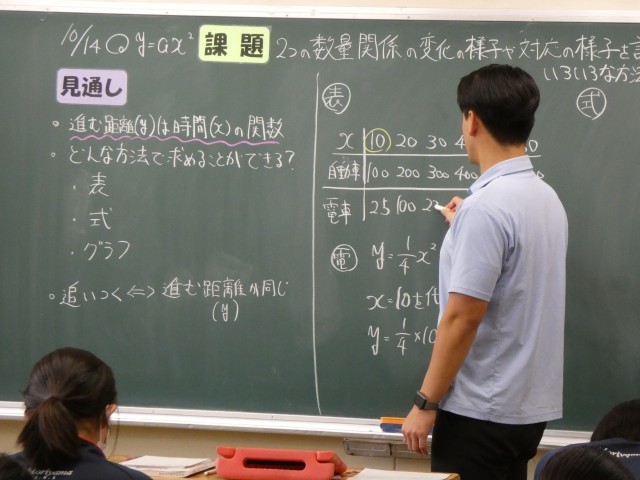 10/14 y=ax² 課題 2つの数量関係の変化の様子や対応の様子を
いろいろな方法
見通し
・進む距離(y)は時間(x)の関数
・どんな方法で求めることができる?
・表
・式
・グラフ
・追いつく⇔進む距離が同じ
(y)
表
式
x 10 20 30
自動車 100 200 300 400
電車 25 100 2
電 y=1/4x²
x=10を代
y=1/4×10